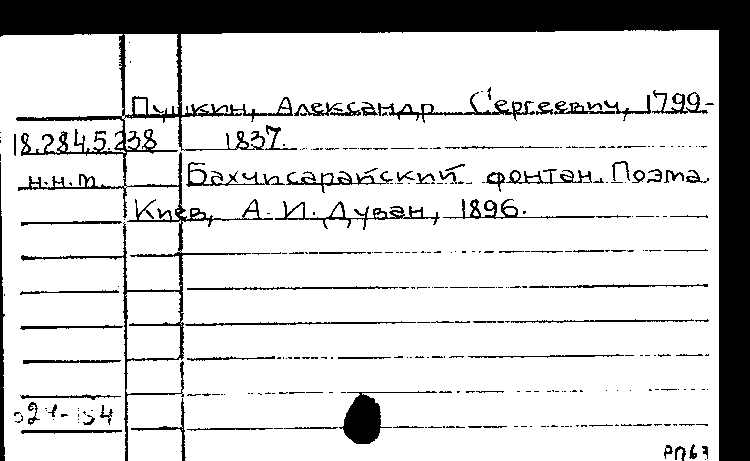 Пушкин, Александр Сергеевич, 1799-
18.284.5.238 1837.
н.н.т. Бахчисарайский фонтан. Поэма.
Киев, А. И. Дуван, 1896.
РП63